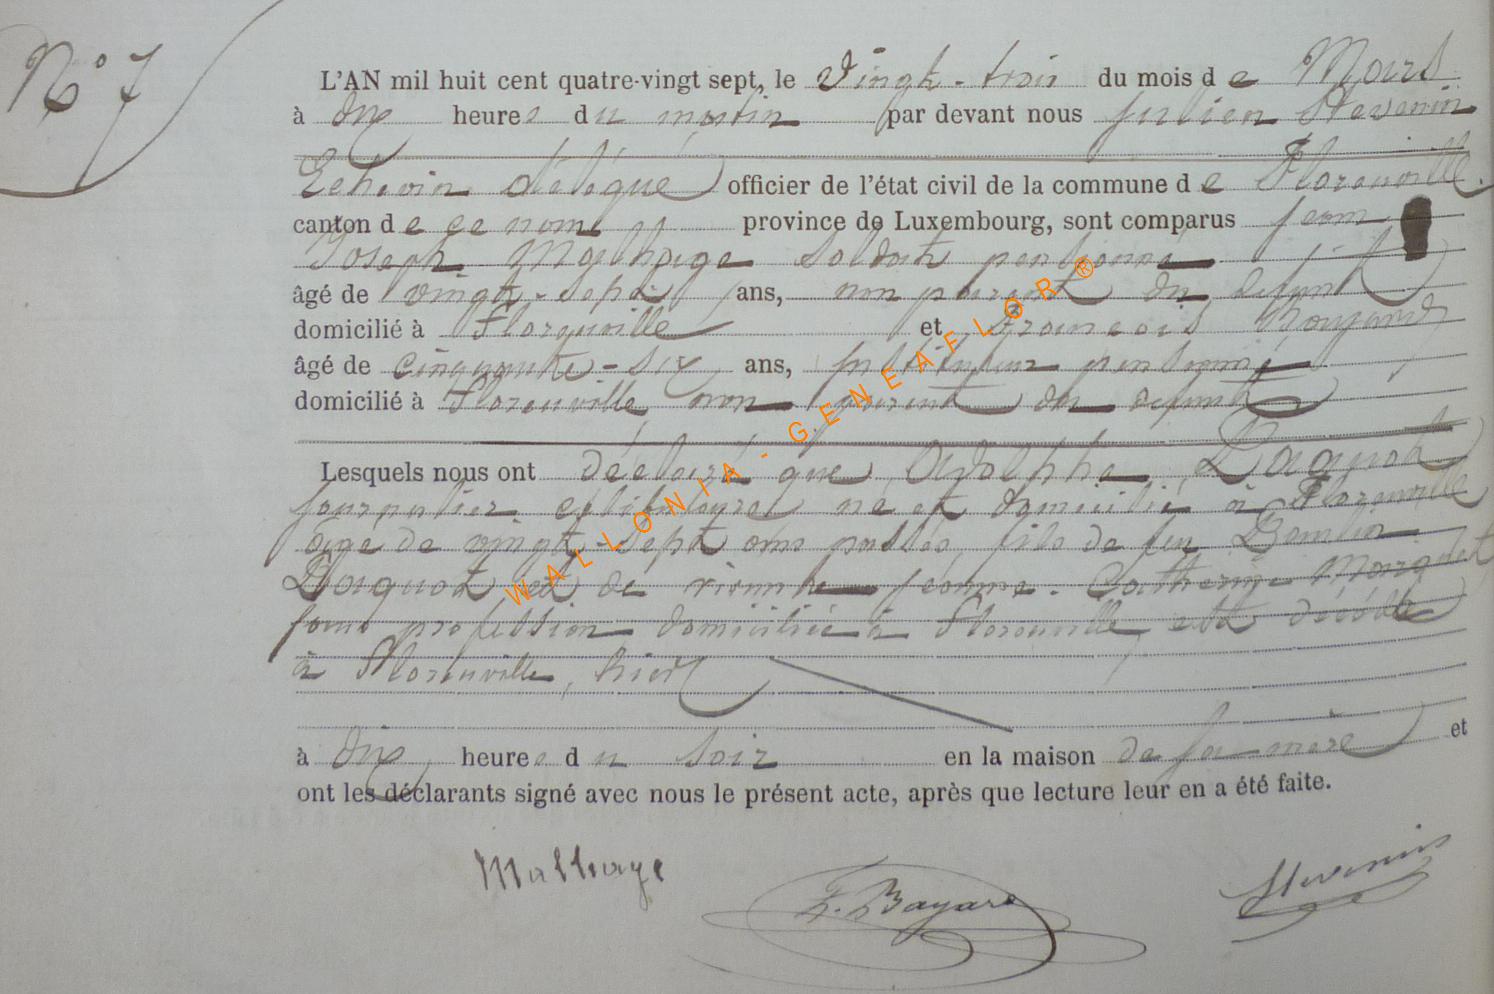 N° 7
L'AN mil huit cent quatre-vingt sept, le vingt-trois du mois de Mars
à dix heures du matin par devant nous Julien Stevenin
Echevin délégué officier de l'état civil de la commune de Florenville.
canton de ce nom province de Luxembourg, sont comparus Jean
Joseph soldat pensionné
âgé de vingt-sept ans, non parent du défunt
domicilié à Florenville et François
âgé de cinquante-six ans, instituteur pensionné
domicilié à Florenville non parent du défunt
Lesquels nous ont déclaré que Adolphe Daquot
journalier célibataire né et domicilié à Florenville
âgé de vingt-sept ans passés, fils de feu
Daquot et de vivante Jeanne-Catherine
sans profession domiciliée à Florenville, est décédé
à Florenville, hier
à dix heures du soir en la maison de sa mère et
ont les déclarants signé avec nous le présent acte, après que lecture leur en a été faite.
Malhage F. Bayard Stevenin
WALLONIA-GENEAFLOR®